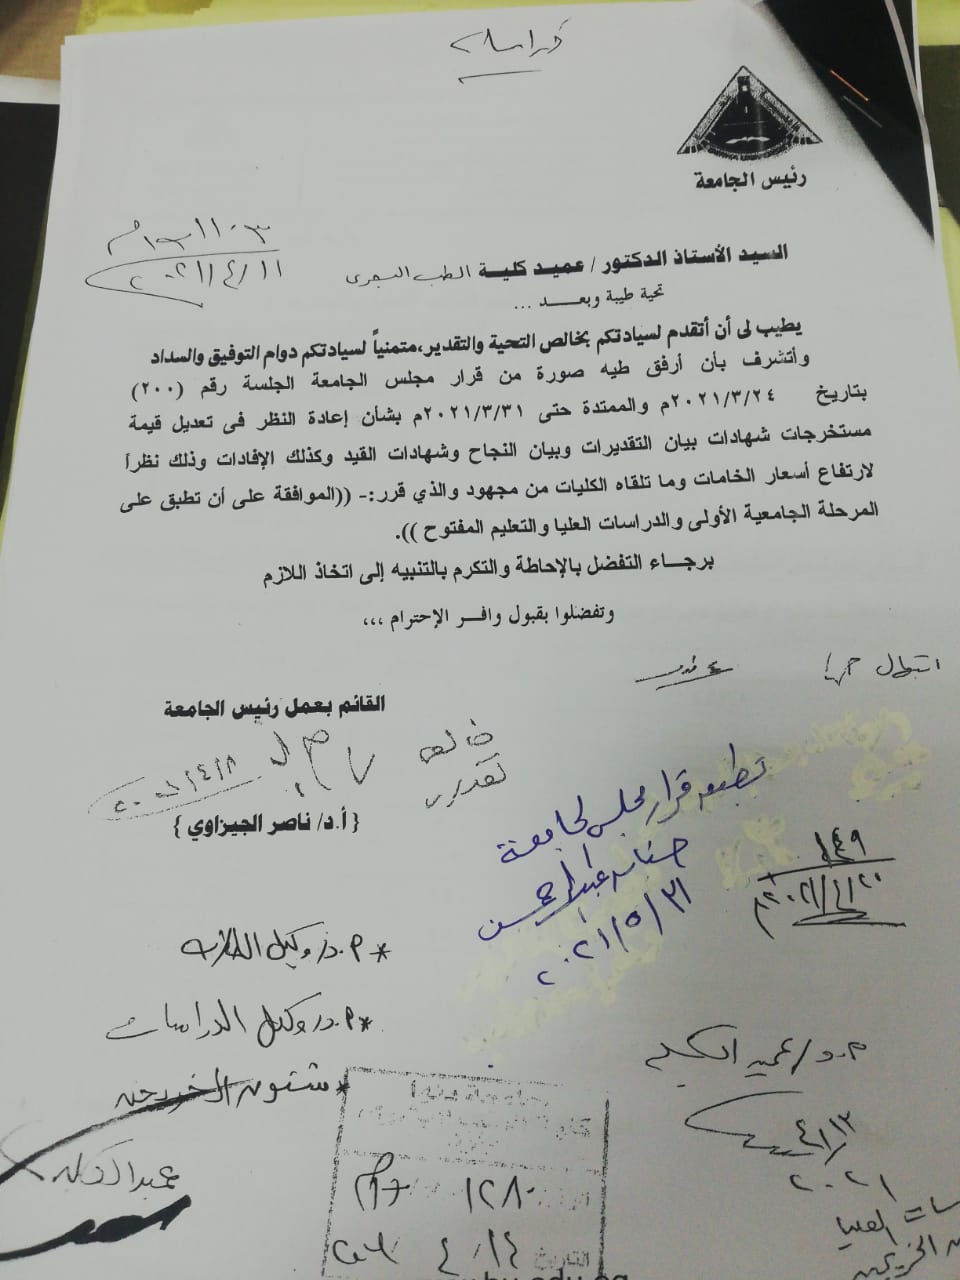 رئيس الجامعة
٢٠٢١/٤/١١
السيد الأستاذ الدكتور / عميد كلية الطب البيطرى
تحية طيبة وبعـــد ...
يطيب لى أن أتقدم لسيادتكم بخالص التحية والتقدير،متمنياً لسيادتكم دوام التوفيق والسداد
وأتشرف بأن أرفق طيه صورة من قرار مجلس الجامعة الجلسة رقم (٢٠٠)
بتاريخ ٢٠٢١/٣/٢٤م والممتدة حتى ٢٠٢١/٣/٣١م بشأن إعادة النظر فى تعديل قيمة
مستخرجات شهادات بيان التقديرات وبيان النجاح وشهادات القيد وكذلك الإفادات وذلك نظراً
لارتفاع أسعار الخامات وما تلقاه الكليات من مجهود والذي قرر:- ((الموافقة على أن تطبق على
المرحلة الجامعية الأولى والدراسات العليا والتعليم المفتوح )).
برجـــاء التفضل بالإحاطة والتكرم بالتنبيه إلى اتخاذ اللازم
وتفضلوا بقبول وافـــر الإحترام ،،،
القائم بعمل رئيس الجامعة
خالص
تقديرى
{ أ.د/ ناصر الجيزاوي }
تطبيق قرار مجلس الجامعة
٢٠٢١/٥/٣١
١٤٩
٢٠٢١/٤/٢٠م
* أ.د. وكيل الطلاب
* أ.د. وكيل الدراسات
* شئون الخريجين
أ.د/ عميد الكلية
٤/١٣
٢٠٢١
١٢٨٠
التاريخ ٤/١٤
العليا